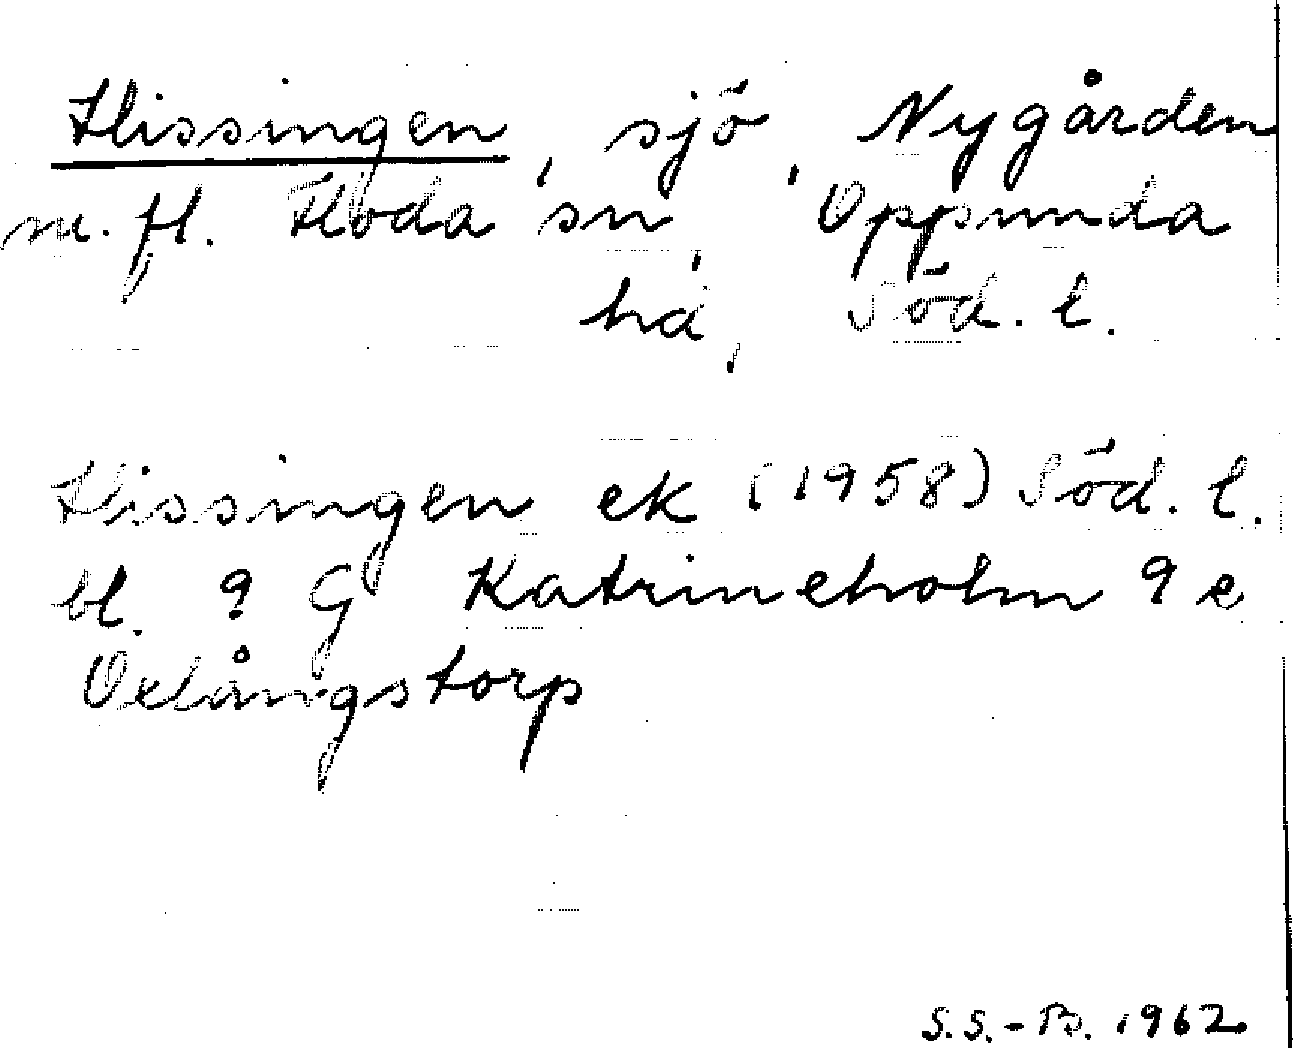 Flissingen, sjö, Nygården
m. fl. Floda sn, Oppunda
hd, Söd. l.
Flissingen ek (1958) Söd. l.
bl. 9 G Katrineholm 9 e
Oxlångstorp
S.S.-B. 1962.